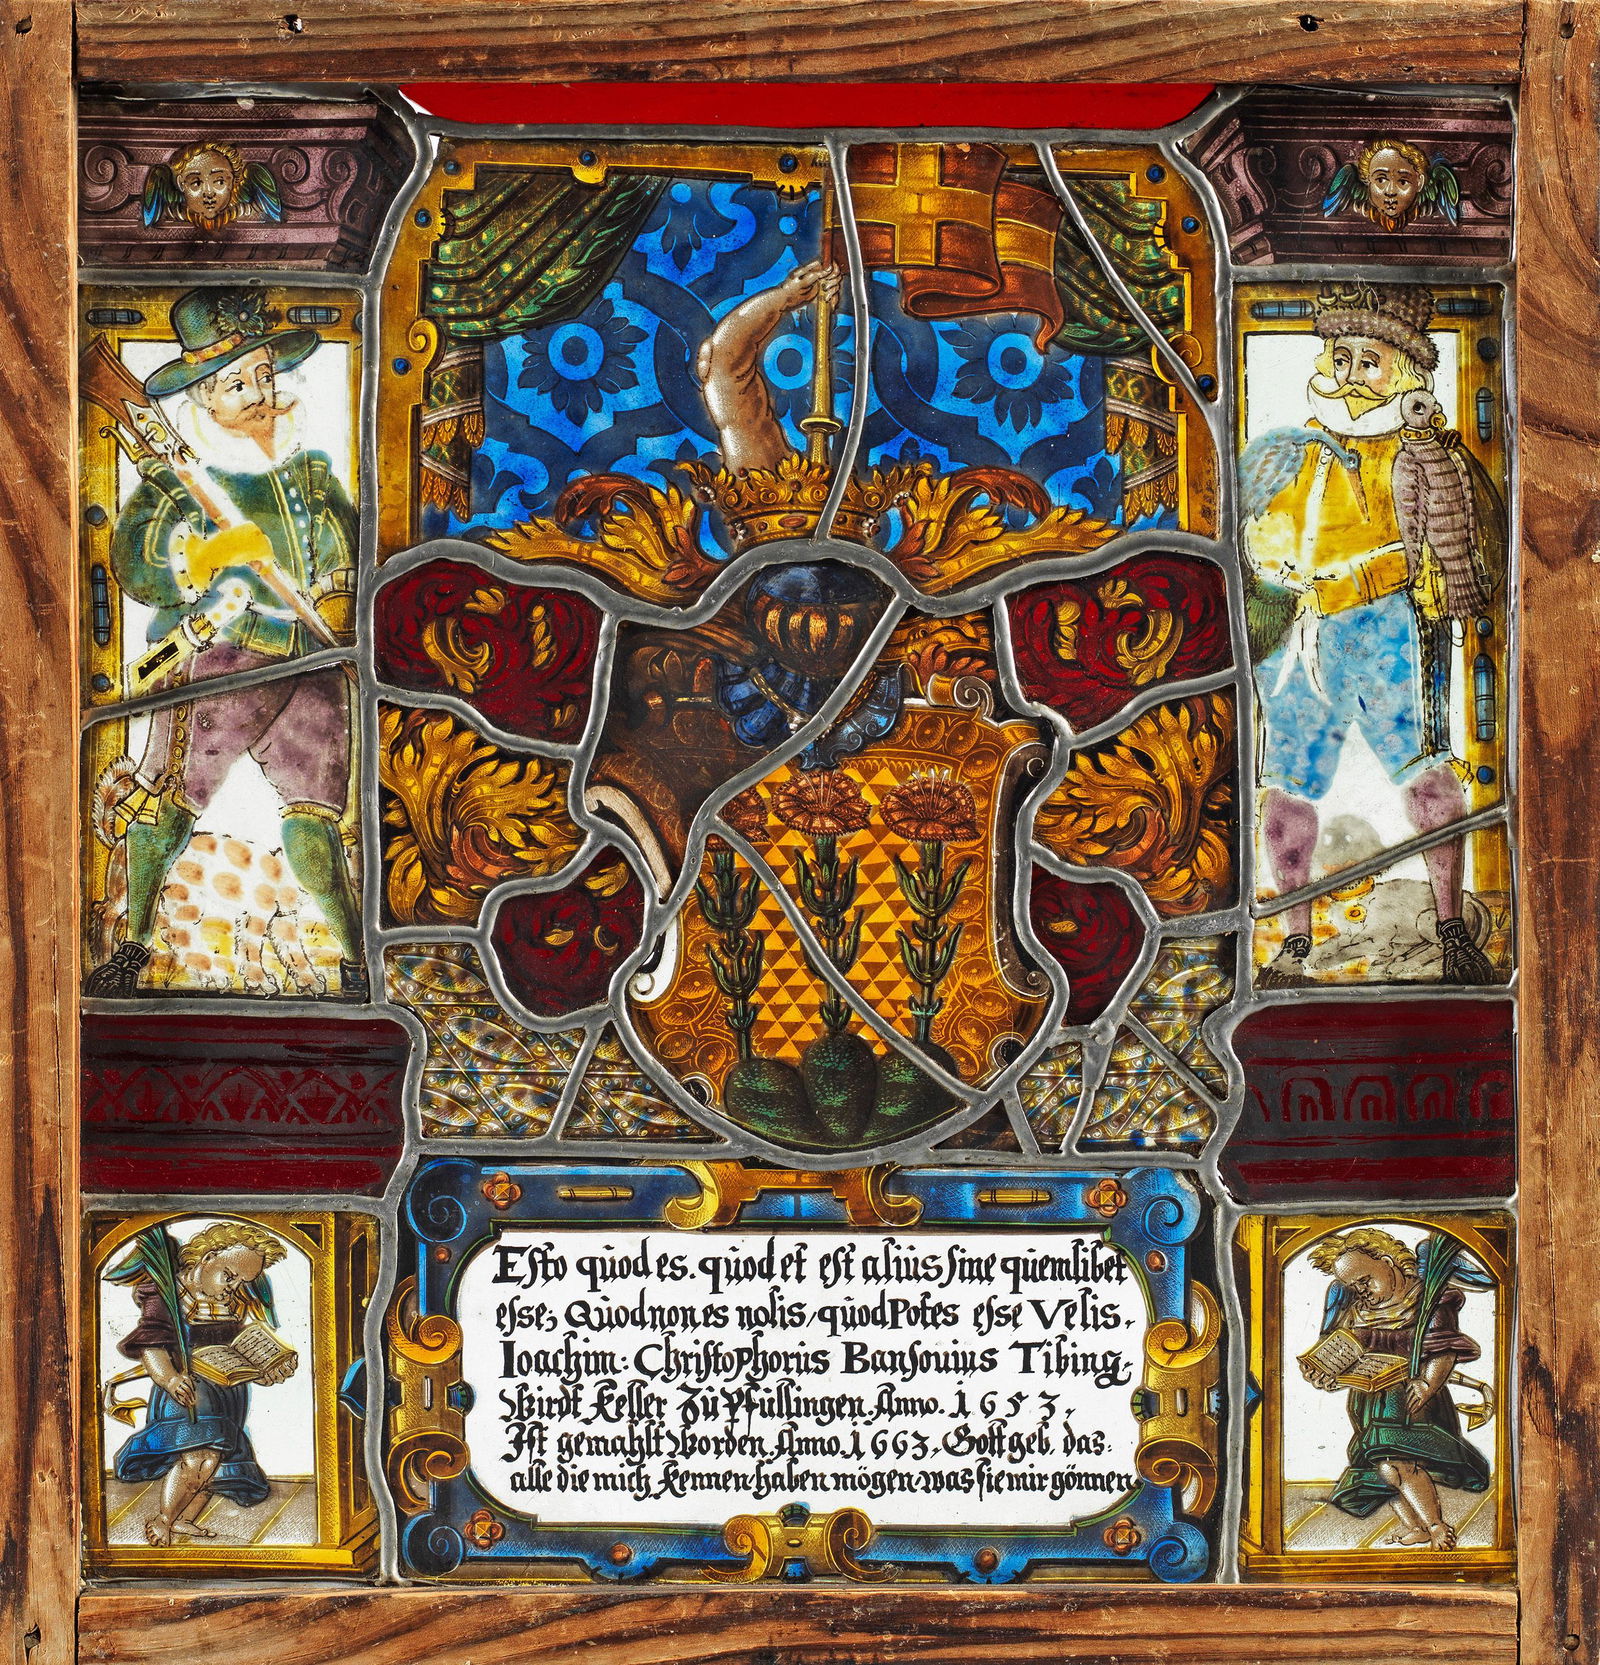 Esto quod es. quod et est alius sine quemlibet
esse; Quod non es nolis, quod Potes esse Velis.
Ioachim: Christophorus Bansouius Tibing:
Wirdt Keller Zu Pfullingen. Anno. 1653.
Ist gemahlt worden. Anno. 1663. Gott geb. das:
alle die mich kennen haben mögen was sie mir gönnen.